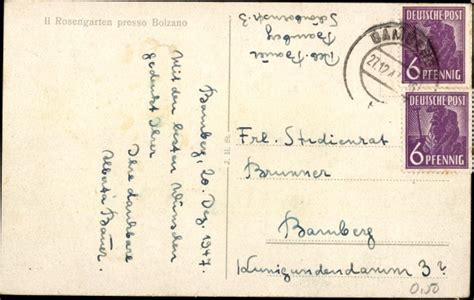 Il Rosengarten presso Bolzano
Bamberg
27.12.4
DEUTSCHE POST
6 PFENNIG
DEUTSCHE POST
6 PFENNIG
Bamberg, 20. Dez. 1947.
Mit den besten Wünschen
gedenkt Ihrer
Ihre dankbare
Bauer
J. H. B.
Frl. Studienrat
Brunner
Bamberg
Kunigundendamm 3
0,50